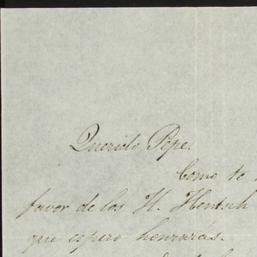 Querido Pepe.
Como te
favor de los H. Hentsch
que espero honraras.